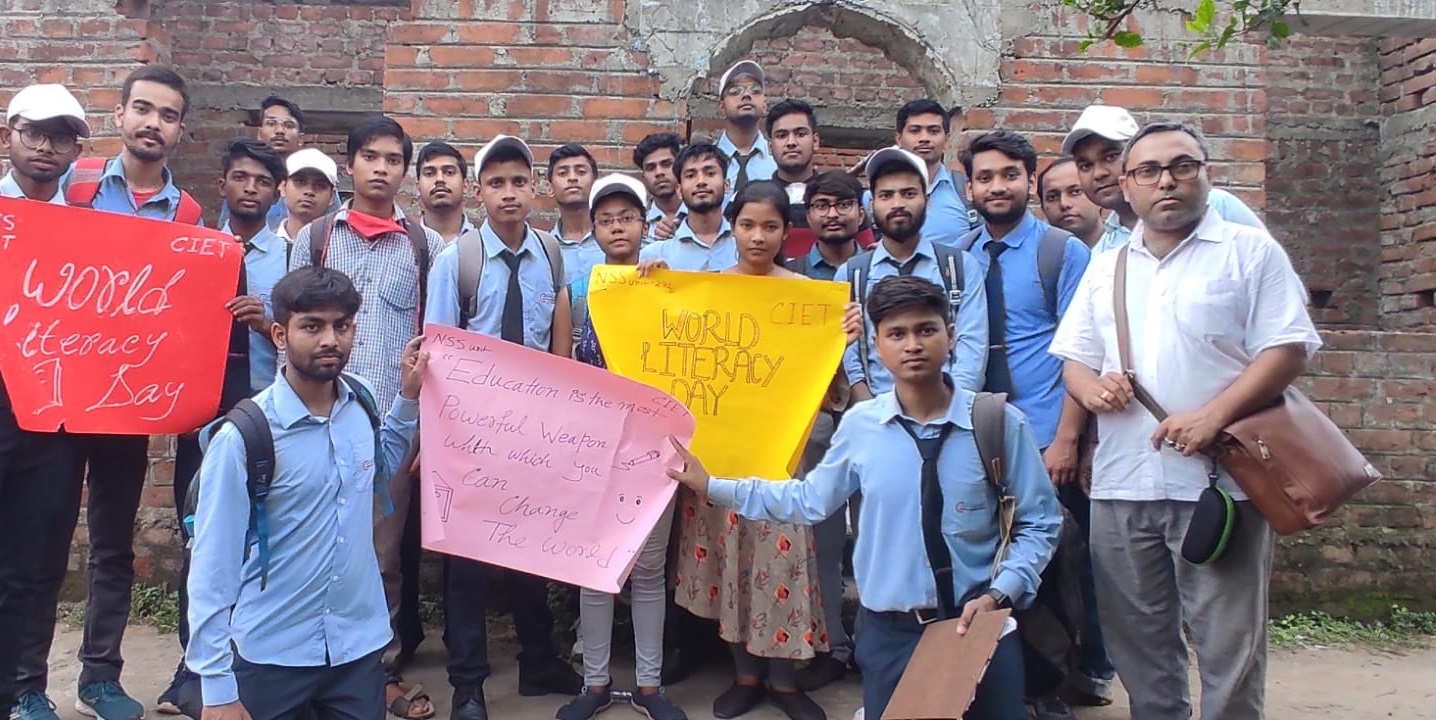 CIET
World
Literacy
Day
NSS Unit
CIET
"Education is the most
Powerful Weapon
with which you
Can
Change
The World"
NSS Unit
CIET
WORLD
LITERACY
DAY